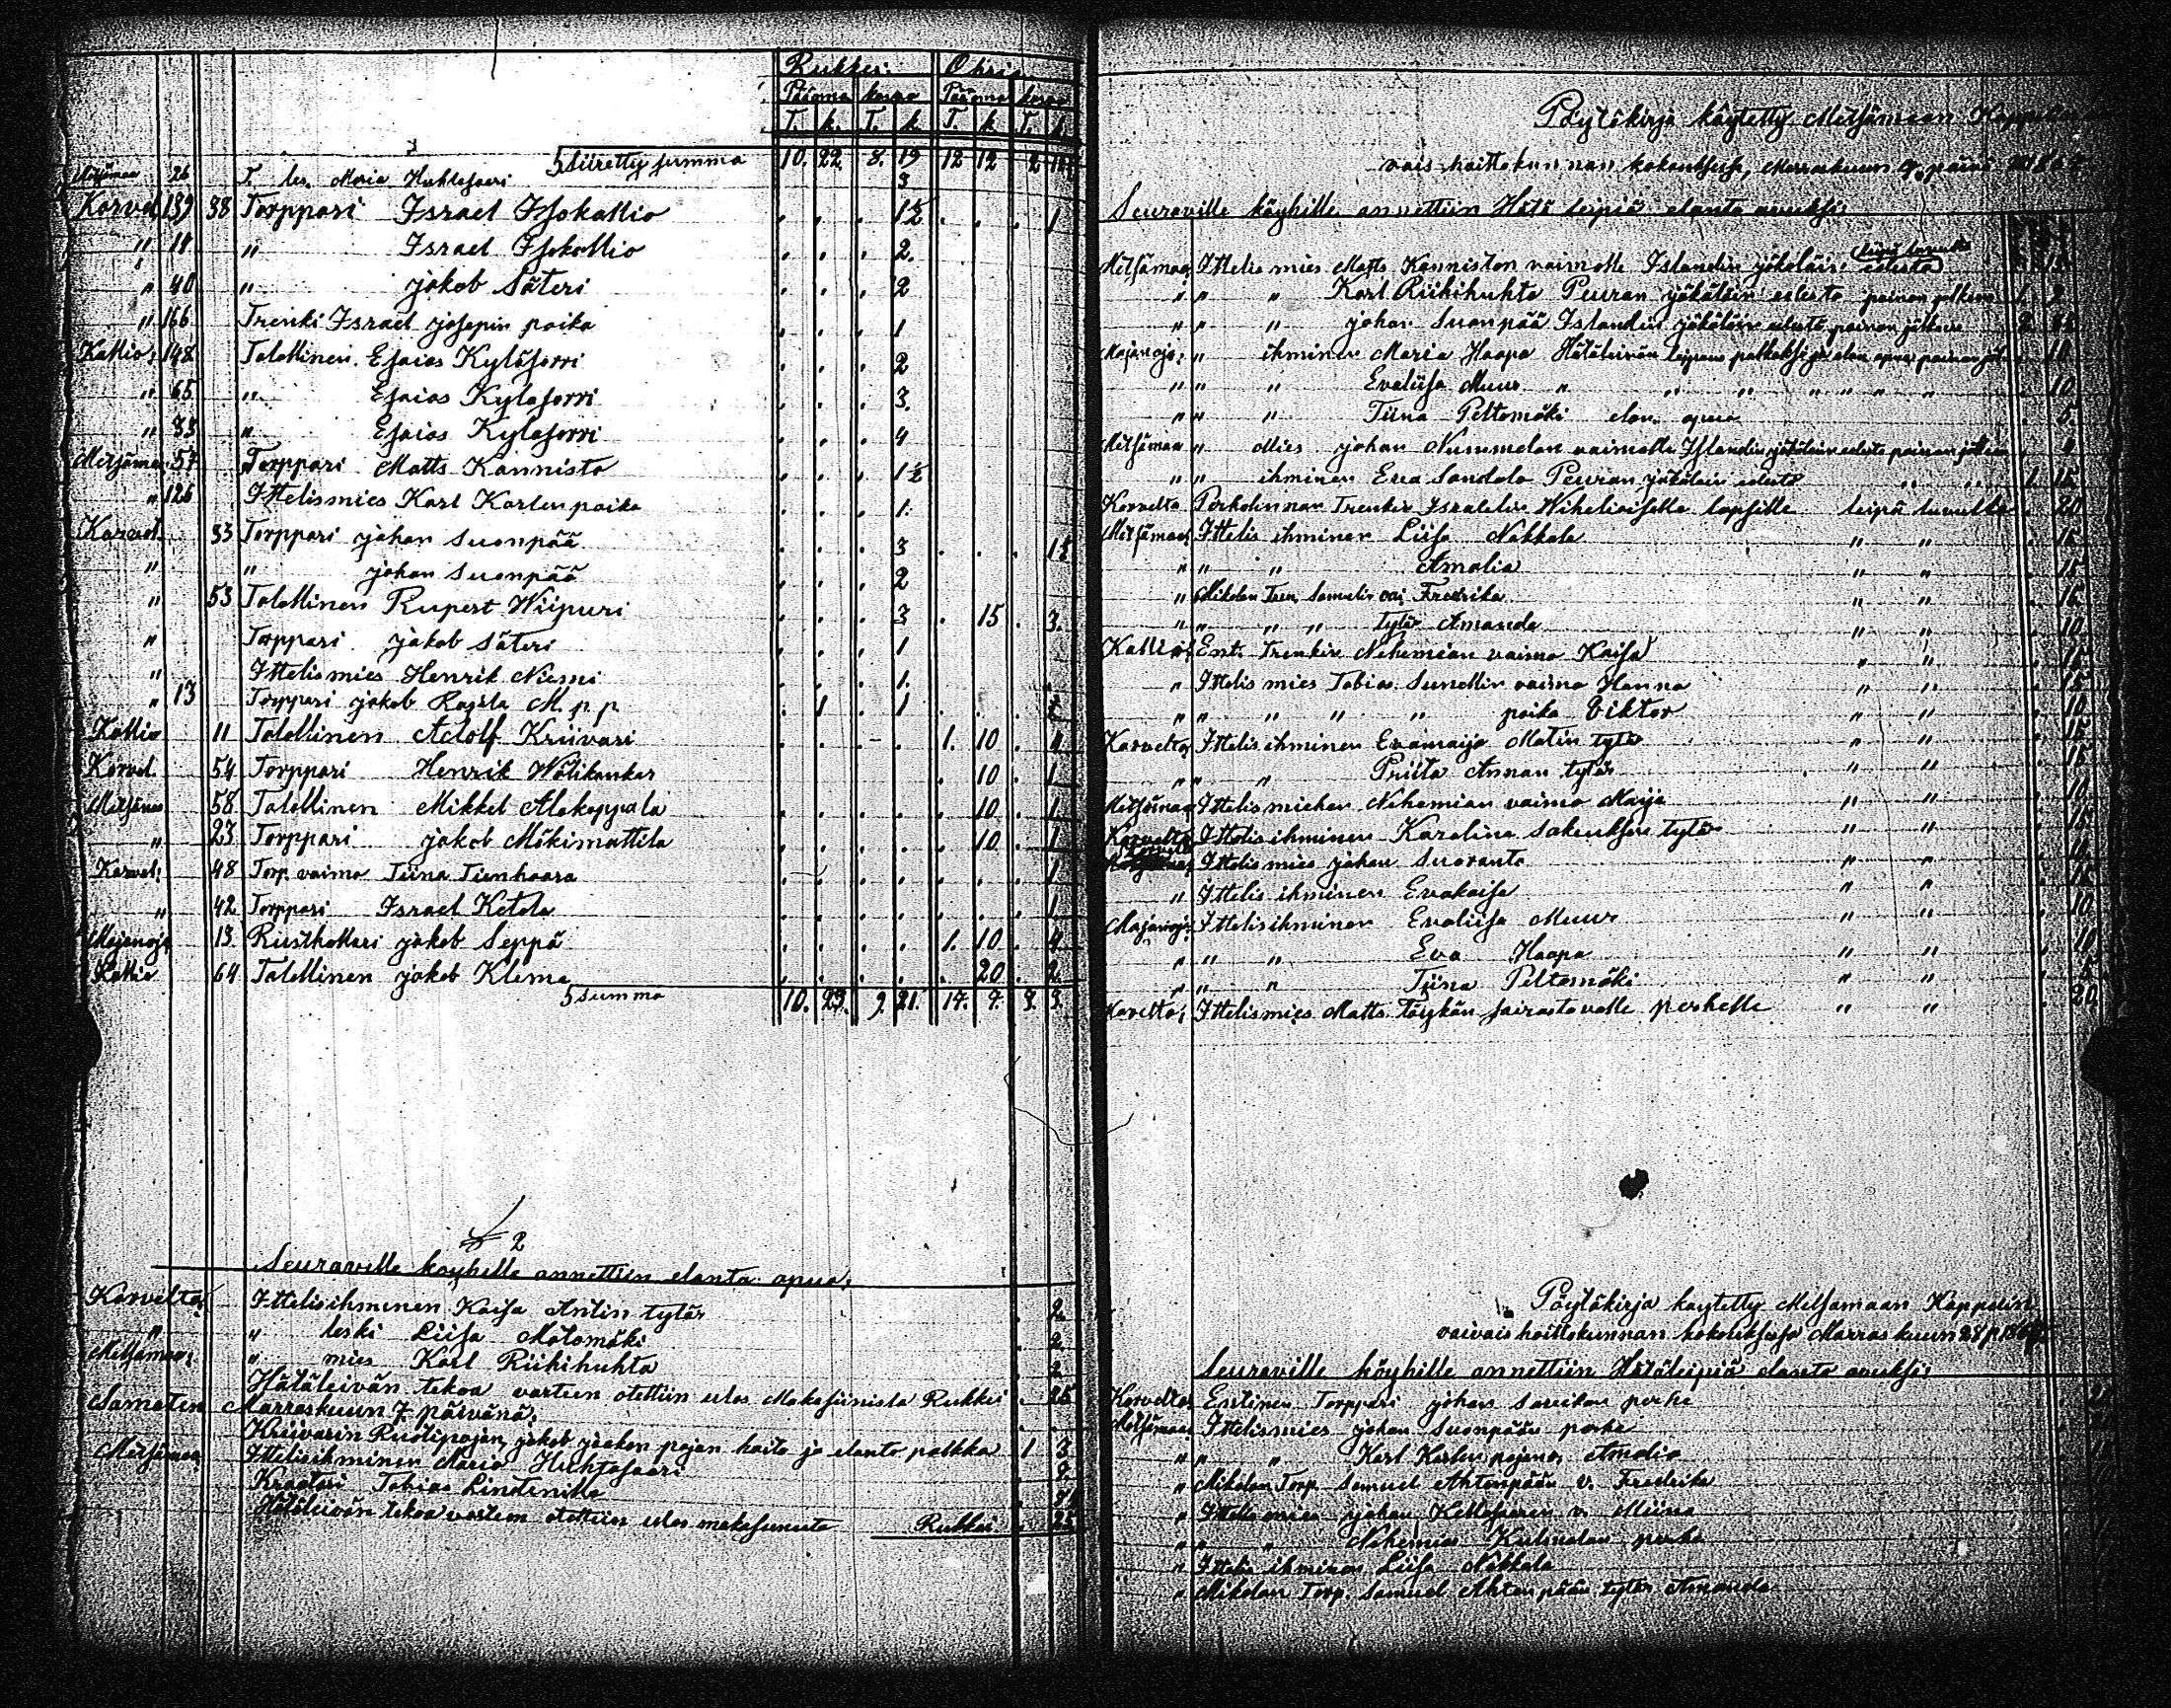 Rukkii. Ohria
Pääoma korko Pääoma korko
T. k. T. k. T. k. T. k.
Siiretty summa 10. 22. 8. 19 12 12 2
Metsämaa 26 T. les. Maria Huhtasaari 3
Korvel. 139 38 Torppari Israel Isokallio 1½ 1
" 14 " Israel Isokallio 2.
" 40 " jakob Säteri 2
" 166 Trenki Israel josepin poika 1
Kallio: 148 Talollinen Esaias Kyläsorri 2
" 65 " Esaias Kyläsorri 3.
" 83 " Esaias Kyläsorri 4
Metsämaa 57 Torppari Matts Kannisto 1½
" 126 Ittelismies Karl Karlen poika 1.
Korvel. 33 Torppari johan Suonpää 3
" " johan Suonpää 2
" 53 Talollinen Rupert Wiipuri 3 15 3.
" Torppari jakob Säteri 1
" Ittelismies Henrik Niemi 1.
" 13 Torppari jakob Rajala M. p. p 1 1
Kallio 11 Talollinen Adolf Kriivari 1. 10 4
Korvel. 54 Torppari Henrik Wälikankar 10 1
Metsämaa 58 Talollinen Mikkel Alakappala 10 1
" 23 Torppari jakob Mäkimattila 10 1
Korvel: 48 Torp. vaimo Tiina Tienhaara 1
" 42 Torppari Israel Ketola 1
Majanoja 13 Rusthollari jakob Seppä 1. 10 4
Kallio 64 Talollinen jakob Klema 20 2
Summa 10. 23. 9. 21. 14. 9. 3. 3.
2
Seuraville köyhille annettiin elanto apua:
Korvelta: Ittelisihminen Kaisa Antin tytär 2
" " leski Liisa Mätomäki 2
Metsämaa: " mies Karl Riihihuhta 2
Hätäleivän tekoa varten otettiin ulos Makasiinista Rukkii 25
Samaten Marraskuun 7. päivänä:
Kriivarin Ruotipojan, jakob jaakon pojan hoito ja elanto palkka 1 3
Metsämaa: Ittelisihminen Maria Huhtasaari
Kraatari Tobias Lindenille
Hätäleivän tekoa varten otettiin ulos makasiinista Rukkii 25
Pöytäkirja käytetty Metsämaan Kappelin
vaishoittokunnan kokouksessa, Marraskuun 7. päivä
Seuraville köyhille annettiin Hätä leipiä elanto avuksi;
Metsämaa: Ittelis mies Matts Kanniston vaimolle Islandin jäkäläin edestä leipä luvulta
" " " Karl Riihihuhta Peuran jäkäläin edestä painon jälkeen 1. 2
" " " johan Suonpää Islandin jäkäläin edestä painon jälkeen
Majanoja: " ihminen Maria Haapa Hätäleivän leipano palkaksi ja elan. apua 10
" " " Evaliisa Muur " " " " 10.
" " " Tiina Peltomäki elan. apua 5.
Metsämaa " Mies johan Nummelan vaimolle Islandin jäkäläin edestä painon jälkeen 4
" " ihminen Eva Sandala Peuran jäkäläin edestä " " 1. 15
Korvelta Perholinnan Trenkin Israelin Wiheliäisille lapsille leipä luvulta 20
Metsämaa: Ittelis ihminen Liisa Nakkala " " 15
" " " Amalia " " 15
" Mikolan Torp. Samulin vai. Fredrika " " 15
" " " " tytär Amanda " " 10
Kallio: Ent. Trenkin Nehemian vaimo Kaisa " " 15
" Ittelis mies Tobias Sunellin vaimo Hanna " " 15
" " " " " poika Viktor " " 10
Korvelta Ittelisihminen Evamaija Matin tytär " " 15
" " " Priita Annan tytär " " 15
Metsämaa Ittelismiehen Nehemian vaimo Maija " " 10
Korvelta Ittelisihminen Karolina Sakeuksen tytär " " 15
Korvelta Ittelis mies johan Suoranta " "
" Ittelis ihminen Evakaisa " "
Majanoja: Ittelisihminen Evaliisa Muur " " 10
" " " Eva Haapa " " 10
" " " Tiina Peltomäki " " 5
Korvelta; Ittelismies Matts Töykän sairastavalle perhelle " " 20
Pöytäkirja kaytetty Metsämaan Kappelin
vaivaishoittokunnan kokouksessa Marraskuun 28 p.
Seuraville köyhille annettiin Hätäleipiä elanto avuksi;
Korvelta: Entinen Torppari johan perhe
Metsämaa: Ittelismies johan Suonpään perhe
" " " Karl Karlen pojana Amalia
" Mikolan Torp. Samuel Ahtenpään v. Fredrika
" Ittelis mies johan v. Miina
" " " Nehemias perhe
" Ittelis ihminen Liisa Nakkala
" Mikolan Torp. Samuel Ahtenpään tytär Amanda